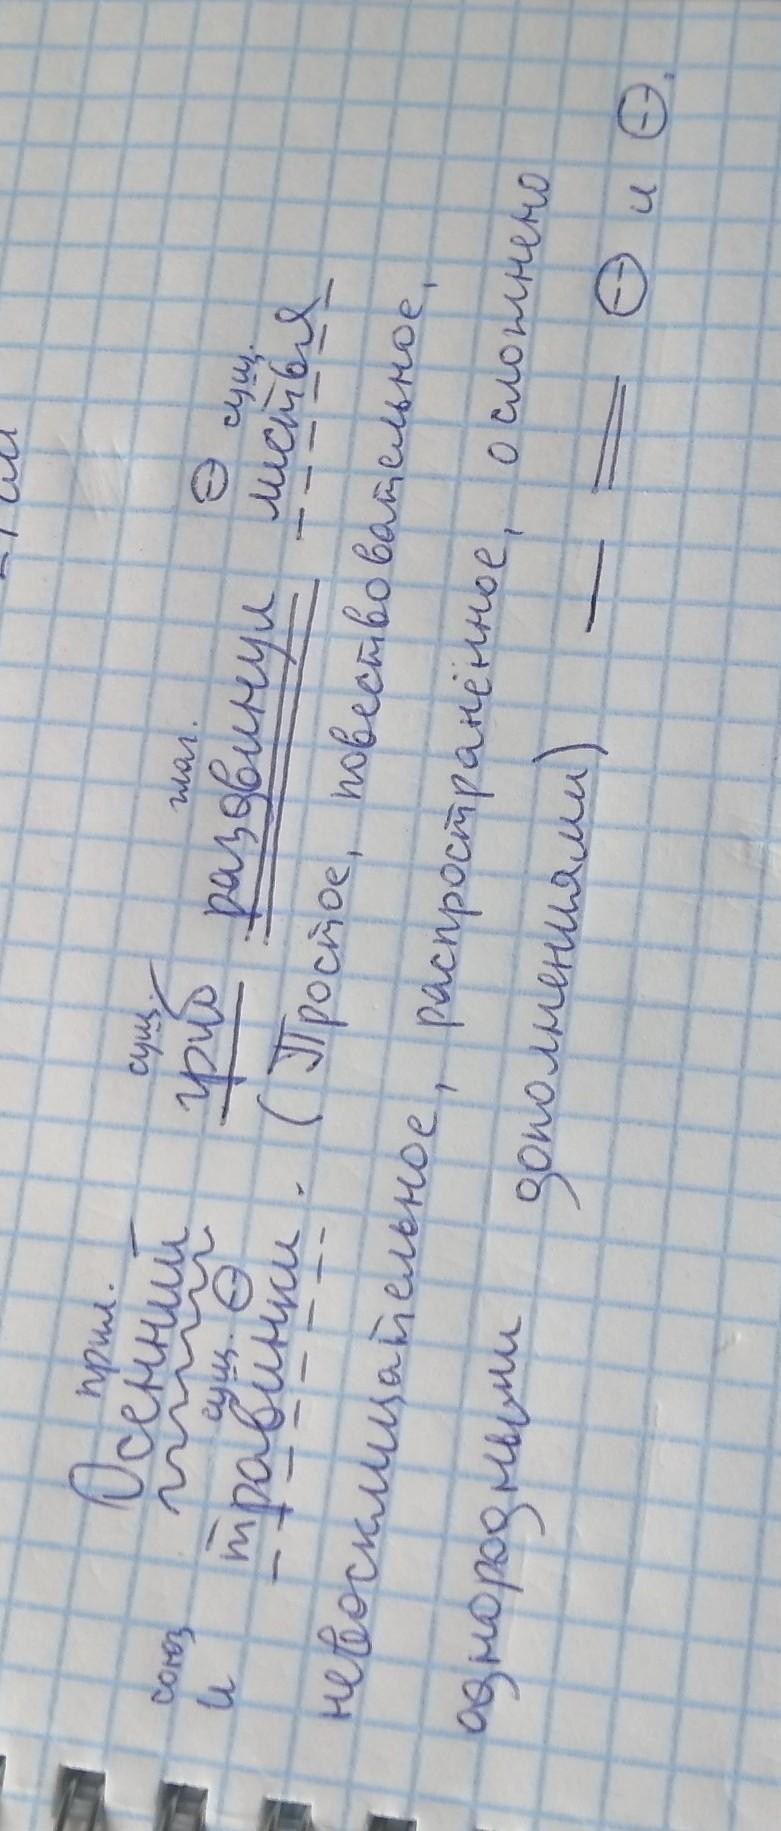 прил. сущ. глаг. сущ.
Осенний гриб раздвинул листья
союз сущ.
и травинки. (Простое, повествовательное,
невосклицательное, распространённое, осложнено
однородными дополнениями)
и